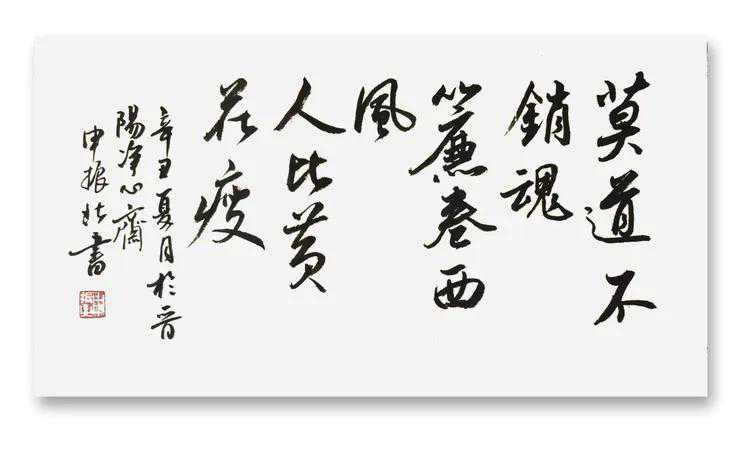 莫道不
銷魂
簾卷西
風
人比黄
花瘦
辛丑夏月於晋
陽净心齋
申振
書